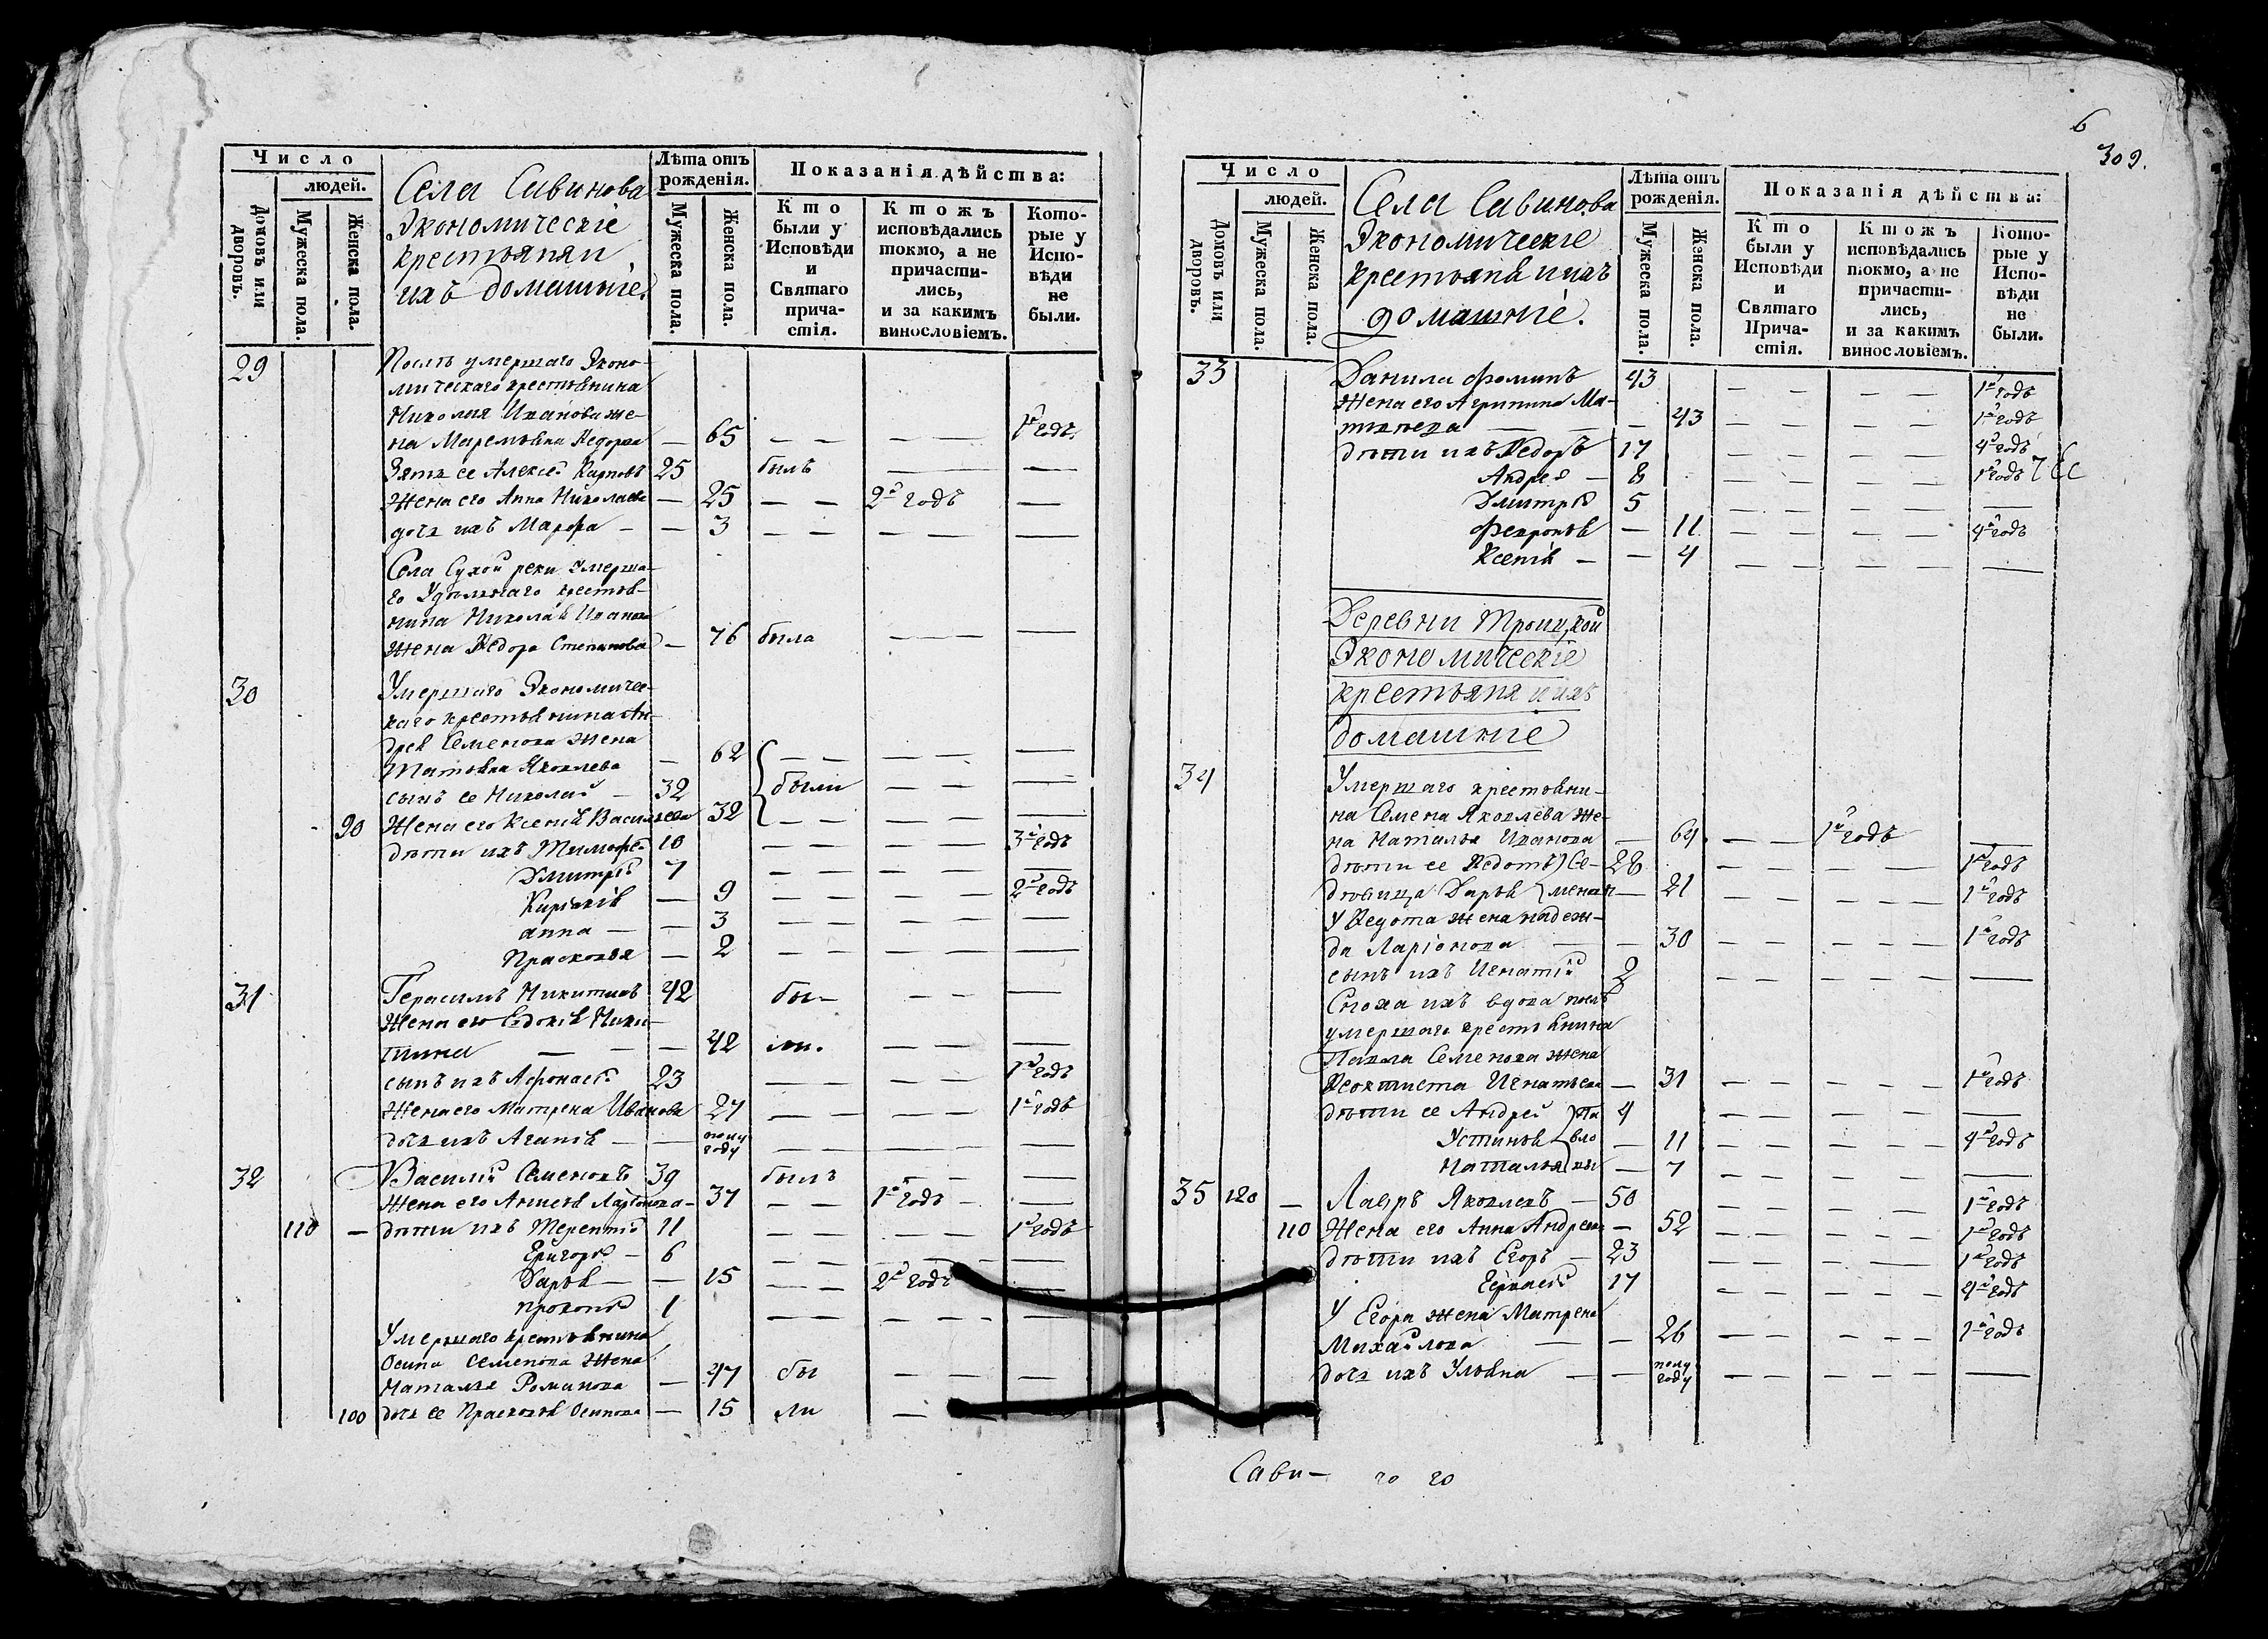 Число
людей.
Домовъ или дворовъ.
Мужеска пола.
Женска пола.
Села Савинова
Экономическіе
крестьяня
ихъ домашніе.
Лѣта отъ рожденія.
Мужеска пола.
Женска пола.
Показанія дѣйства:
Кто были у Исповѣди и Святаго причастія.
Ктожъ исповѣдались токмо, а не причастились, и за какимъ винословіемъ.
Которые у Исповѣди не были.
29 Послѣ умершаго Эконо-
мическаго крестьянина
Николая Иванова же-
на Маремьяна Ѳедорова — 65 — — — — 1й годъ
Зять ее Алексей Карповъ 25 былъ — —
Жена его Анна Николаева — 25 — — 2й годъ —
дочь ихъ Марфа — — 3 — — — — —
Села Сухой реки умерша-
го Удѣльнаго крестья-
нина Николая Иванова
Жена Ѳедора Степанова — 76 была — — — —
30 Умершаго Экономичес-
каго крестьянина Ан-
дрея Семенова Жена
Татьяна Яковлева — 62 — — — — —
сынъ ее Николай — 32 были — — —
90 Жена его Ксенія Васильева 32 — — — — —
дѣти ихъ Тимофей 10 — — — — 3й годъ
Дмитрій 7 — — — — —
Киріакія — 9 — — — — 2й годъ
анна — — 3 — — — — —
Прасковья — 2 — — — — —
31 Герасимъ Никитинъ 42 бы- — — —
Жена его Евдокія Ники-
тина — — — 42 ли. — — —
сынъ ихъ Афонасей 23 — — — — 1й годъ
Жена его Матрена Иванова 27 — — — — 1й годъ
дочь ихъ Агапія — — полу году — — — — —
32 Василій Семеновъ 39 былъ — — —
Жена его Анисья Ларіонова — 37 — — 1й годъ — —
110 — дѣти ихъ Терентій 11 — — — — 1й годъ
Григорей — 6 — — — — —
Дарья — — 15 — — 2й годъ —
Прокопей 1 — — — — —
Умершаго крестьянина
Осипа Семенова Жена
Наталья Романова — 47 бы — — —
100 дочь ее Прасковья Осипова — 15 ли —
6
309.
Число
людей.
Домовъ или дворовъ.
Мужеска пола.
Женска пола.
Села Савинова
Экономическіе
крестьяня и ихъ
домашніе.
Лѣта отъ рожденія.
Мужеска пола.
Женска пола.
Показанія дѣйства:
Кто были у Исповѣди и Святаго Причастія.
Ктожъ исповѣдались токмо, а не причастились, и за какимъ винословіемъ.
Которые у Исповѣди не были.
33 Данила Фоминъ 43 — — — — 1й годъ
Жена его Агрипина Ма-
твеева — — — 43 — — — — 1й годъ
дѣти ихъ Ѳедоръ 17 — — — — 4й годъ
Андрей — 8 — — — — 1й годъ
Дмитрей 5 — — — — —
Феврония — 11 — — — — 4й годъ
Ксенія — — 4 — — — — —
Деревни Троицкой
Экономическіе
крестьяня и ихъ
домашніе
34 Умершаго крестьяни-
на Семена Яковлева Же-
на Наталья Иванова — 64 — — 1й годъ —
дѣти ее Ѳедотъ) Се- 28 — — — — 1й годъ
дѣвица Дарья — 21 — — — — 1й годъ
У Ѳедота Жена надеж-
да Ларіонова — — 30 — — — — 1й годъ
сынъ ихъ Игнатій 2 — — — — —
Сноха ихъ вдова послѣ
умершаго крестьянина
Павла Семенова Жена
Ѳеоктиста Игнатьева — 31 — — — — 1й годъ
дѣти ее Андрей )Па 4 — — — — —
Устинья вло — 11 — — — — 4й годъ
Наталья вы — 7 — — — — —
35 120 — Лавръ Яковлевъ — 50 — — — — 1й годъ
110 Жена его Анна Андреева — 52 — — — — 1й годъ
дѣти ихъ Егоръ — 23 — — — — 1й годъ
17 — — — — 4й годъ
У Егора Жена Матрена
Михайлова — — 26 — — — — 1й годъ
дочь ихъ Ульяна — — полу году — — — — —
Сави— 20 20